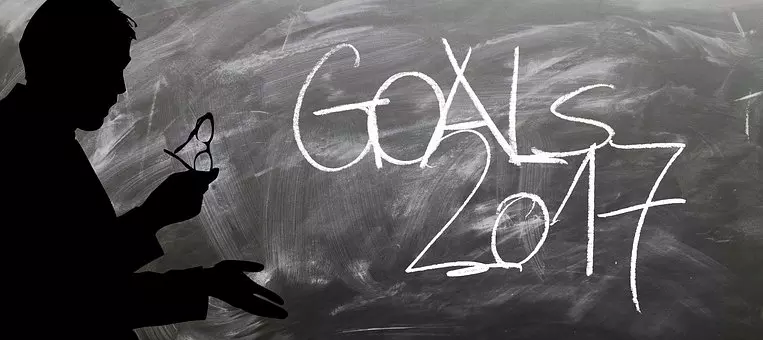 GOALS
2017